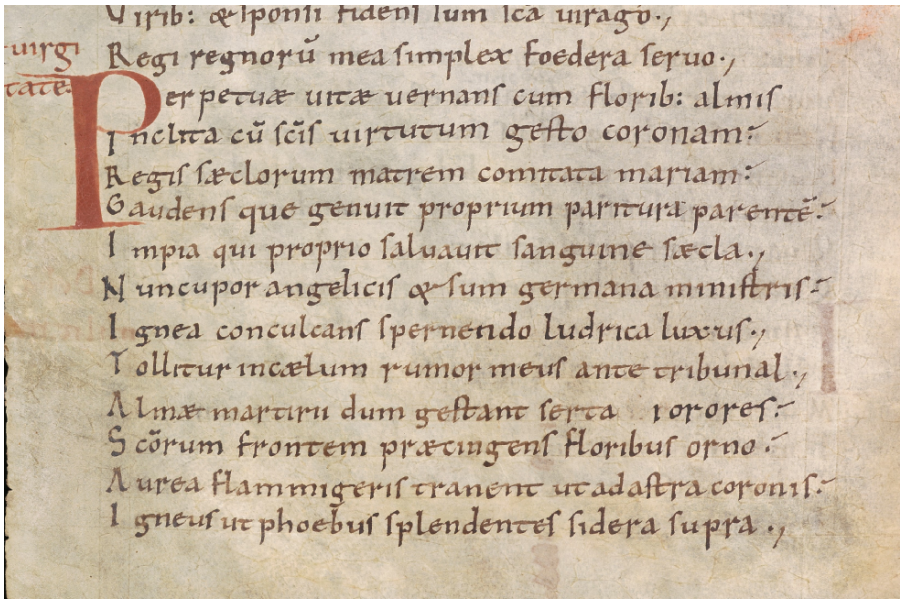 Virib: & sponsi fidens sum sca virago.,
virgi
Regi regnorū mea simplex foedera servo.,
tate:
Perpetuæ vitæ vernans cum florib: almis
Inclita cū scīs virtutum gesto coronam:
Regis sæclorum matrem comitata mariam:
Gaudens que genuit proprium paritura parentē:
Impia qui proprio salvavit sanguine sæcla.,
Nuncupor angelicis & sum germana ministris:
Ignea conculcans spernendo ludrica luxus.,
Tollitur in cælum rumor meus ante tribunal.,
Almæ martirii dum gestant serta rorores:
Scōrum frontem præcingens floribus orno:
Aurea flammigeris tranent ut ad astra coronis:
Igneus ut phoebus splendentes sidera supra.,